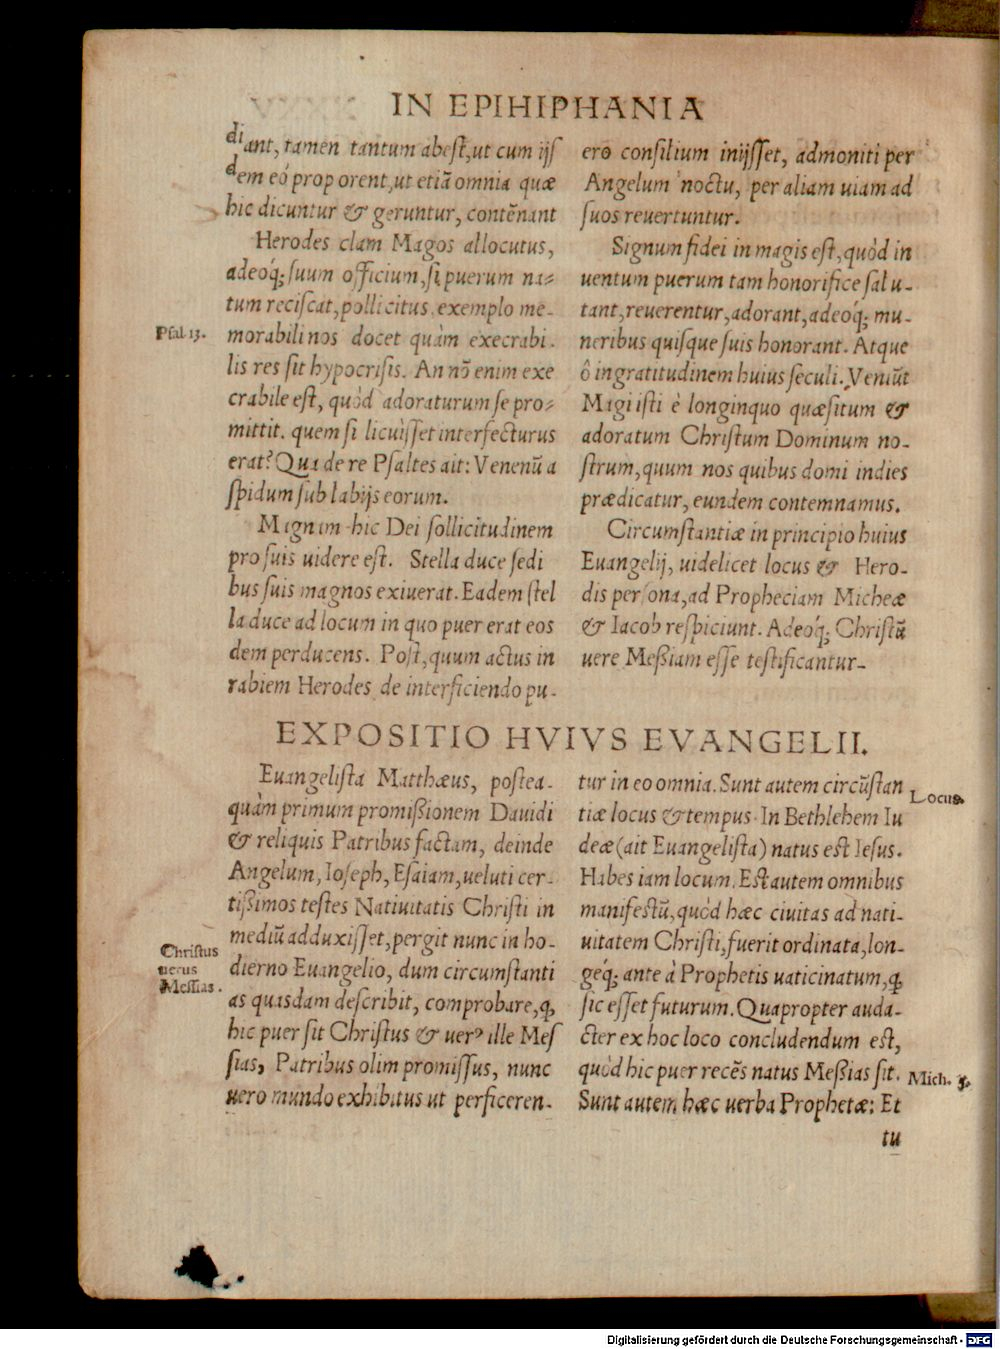 IN EPIHIPHANIA
diant, tamen tantum abeſt, ut cum ijſ
dem eó prop orent, ut etiã omnia quæ
hic dicuntur & geruntur, contẽnant
Herodes clam Magos allocutus,
adeóq́; ſuum officium, ſi puerum na⸗
tum reciſcat, pollicitus, exemplo me-
Pſal 13.
morabili nos docet quàm execrabi-
lis res ſit hypocriſis. An nõ enim exe
crabile eſt, quòd adoraturum ſe pro⸗
mittit. quem ſi licuiſſet interfecturus
erat? Qua de re Pſaltes ait: Venenũ a
ſpidum ſub labijs eorum.
Magnam hic Dei ſollicitudinem
pro ſuis uidere eſt. Stella duce ſedi
bus ſuis magnos exiuerat. Eadem ſtel
la duce ad locum in quo puer erat eos
dem perducens. Poſt, quum actus in
rabiem Herodes de interficiendo pu-
ero conſilium inijſſet, admoniti per
Angelum noctu, per aliam uiam ad
ſuos reuertuntur.
Signum fidei in magis eſt, quòd in
uentum puerum tam honorifice ſalu-
tant, reuerentur, adorant, adeóq́; mu-
neribus quiſque ſuis honorant. Atque
ô ingratitudinem huius ſeculi. Veniũt
Magi iſti è longinquo quæſitum &
adoratum Chriſtum Dominum no-
ſtrum, quum nos quibus domi indies
prædicatur, eundem contemnamus.
Circumſtantiæ in principio huius
Euangelij, uidelicet locus & Hero-
dis perſona, ad Propheciam Micheæ
& Iacob reſpiciunt. Adeóq́; Chriſtũ
uere Meßiam eſſe teſtificantur-
EXPOSITIO HVIVS EVANGELII.
Euangeliſta Matthæus, poſtea-
quàm primum promißionem Dauidi
& reliquis Patribus factam, deinde
Angelum, Ioſeph, Eſaiam, ueluti cer-
tißimos teſtes Natiuitatis Chriſti in
mediũ adduxiſſet, pergit nunc in ho-
Chriſtus
uerus
Meſſias.
dierno Euangelio, dum circumſtanti
as quasdam deſcribit, comprobare, ꝙ
hic puer ſit Chriſtus & uerꝰ ille Meſ
ſias, Patribus olim promiſſus, nunc
uero mundo exhibitus ut perficeren-
tur in eo omnia. Sunt autem circũſtan
Locus.
tiæ locus & tempus. In Bethlehem Iu
deæ (ait Euangeliſta) natus eſt Ieſus.
Habes iam locum. Eſt autem omnibus
manifeſtũ, quòd hæc ciuitas ad nati-
uitatem Chriſti, fuerit ordinata, lon-
geq́; ante à Prophetis uaticinatum, ꝙ
ſic eſſet futurum. Quapropter auda-
cter ex hoc loco concludendum eſt,
quòd hic puer recẽs natus Meßias ſit.
Mich. 5.
Sunt autem hæc uerba Prophetæ: Et
tu
Digitalisierung gefördert durch die Deutsche Forschungsgemeinschaft - DFG